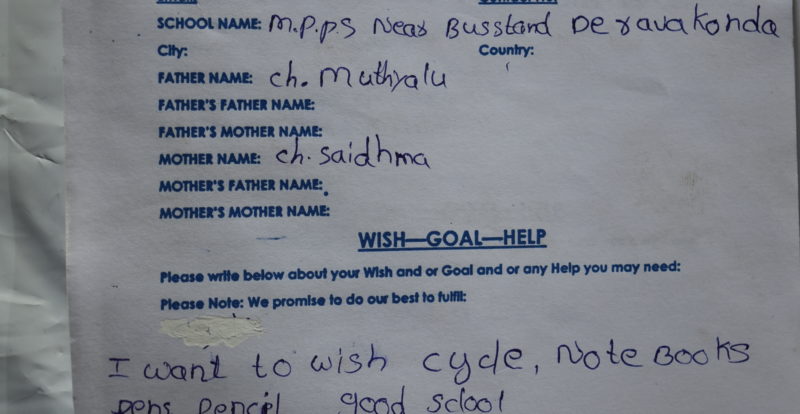 SCHOOL NAME: M.P.P.S Near Busstand Deravakonda
City: Country:
FATHER NAME: ch. Muthyalu
FATHER'S FATHER NAME:
FATHER'S MOTHER NAME:
MOTHER NAME: ch. saidhma
MOTHER'S FATHER NAME:
MOTHER'S MOTHER NAME:
WISH—GOAL—HELP
Please write below about your Wish and or Goal and or any Help you may need:
Please Note: We promise to do our best to fulfil:
I want to wish cycle, Note Books
pens pencil good sclool